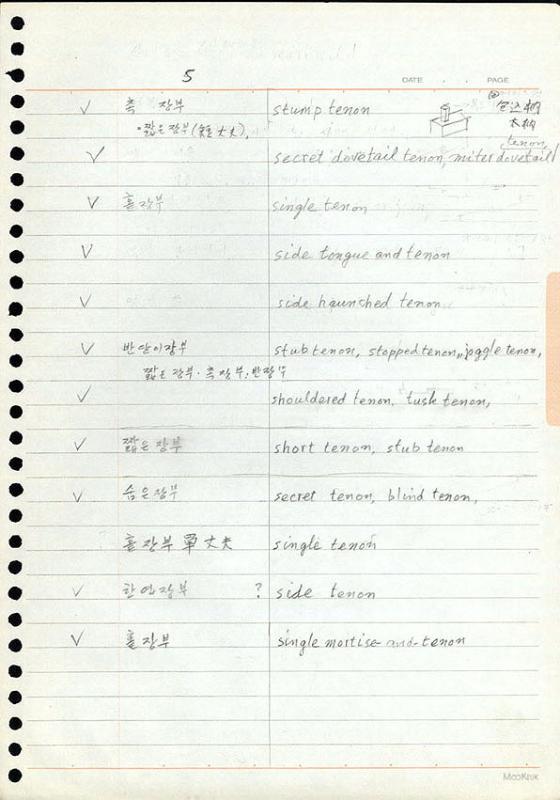 5
DATE . . PAGE
촉 장부 stump tenon
•짧은장부(短丈夫),
secret dovetail tenon, miter dovetail tenon,
홑장부 single tenon
side tongue and tenon
side haunched tenon
반닫이장부 stub tenon, stopped tenon, joggle tenon,
짧은 장부. 촉 장부. 반장부
shouldered tenon, tusk tenon,
짧은 장부 short tenon, stub tenon
숨은장부 secret tenon, blind tenon,
홑장부 單丈夫 single tenon
장부 ? side tenon
홑장부 single mortise-and-tenon
MOOKUK